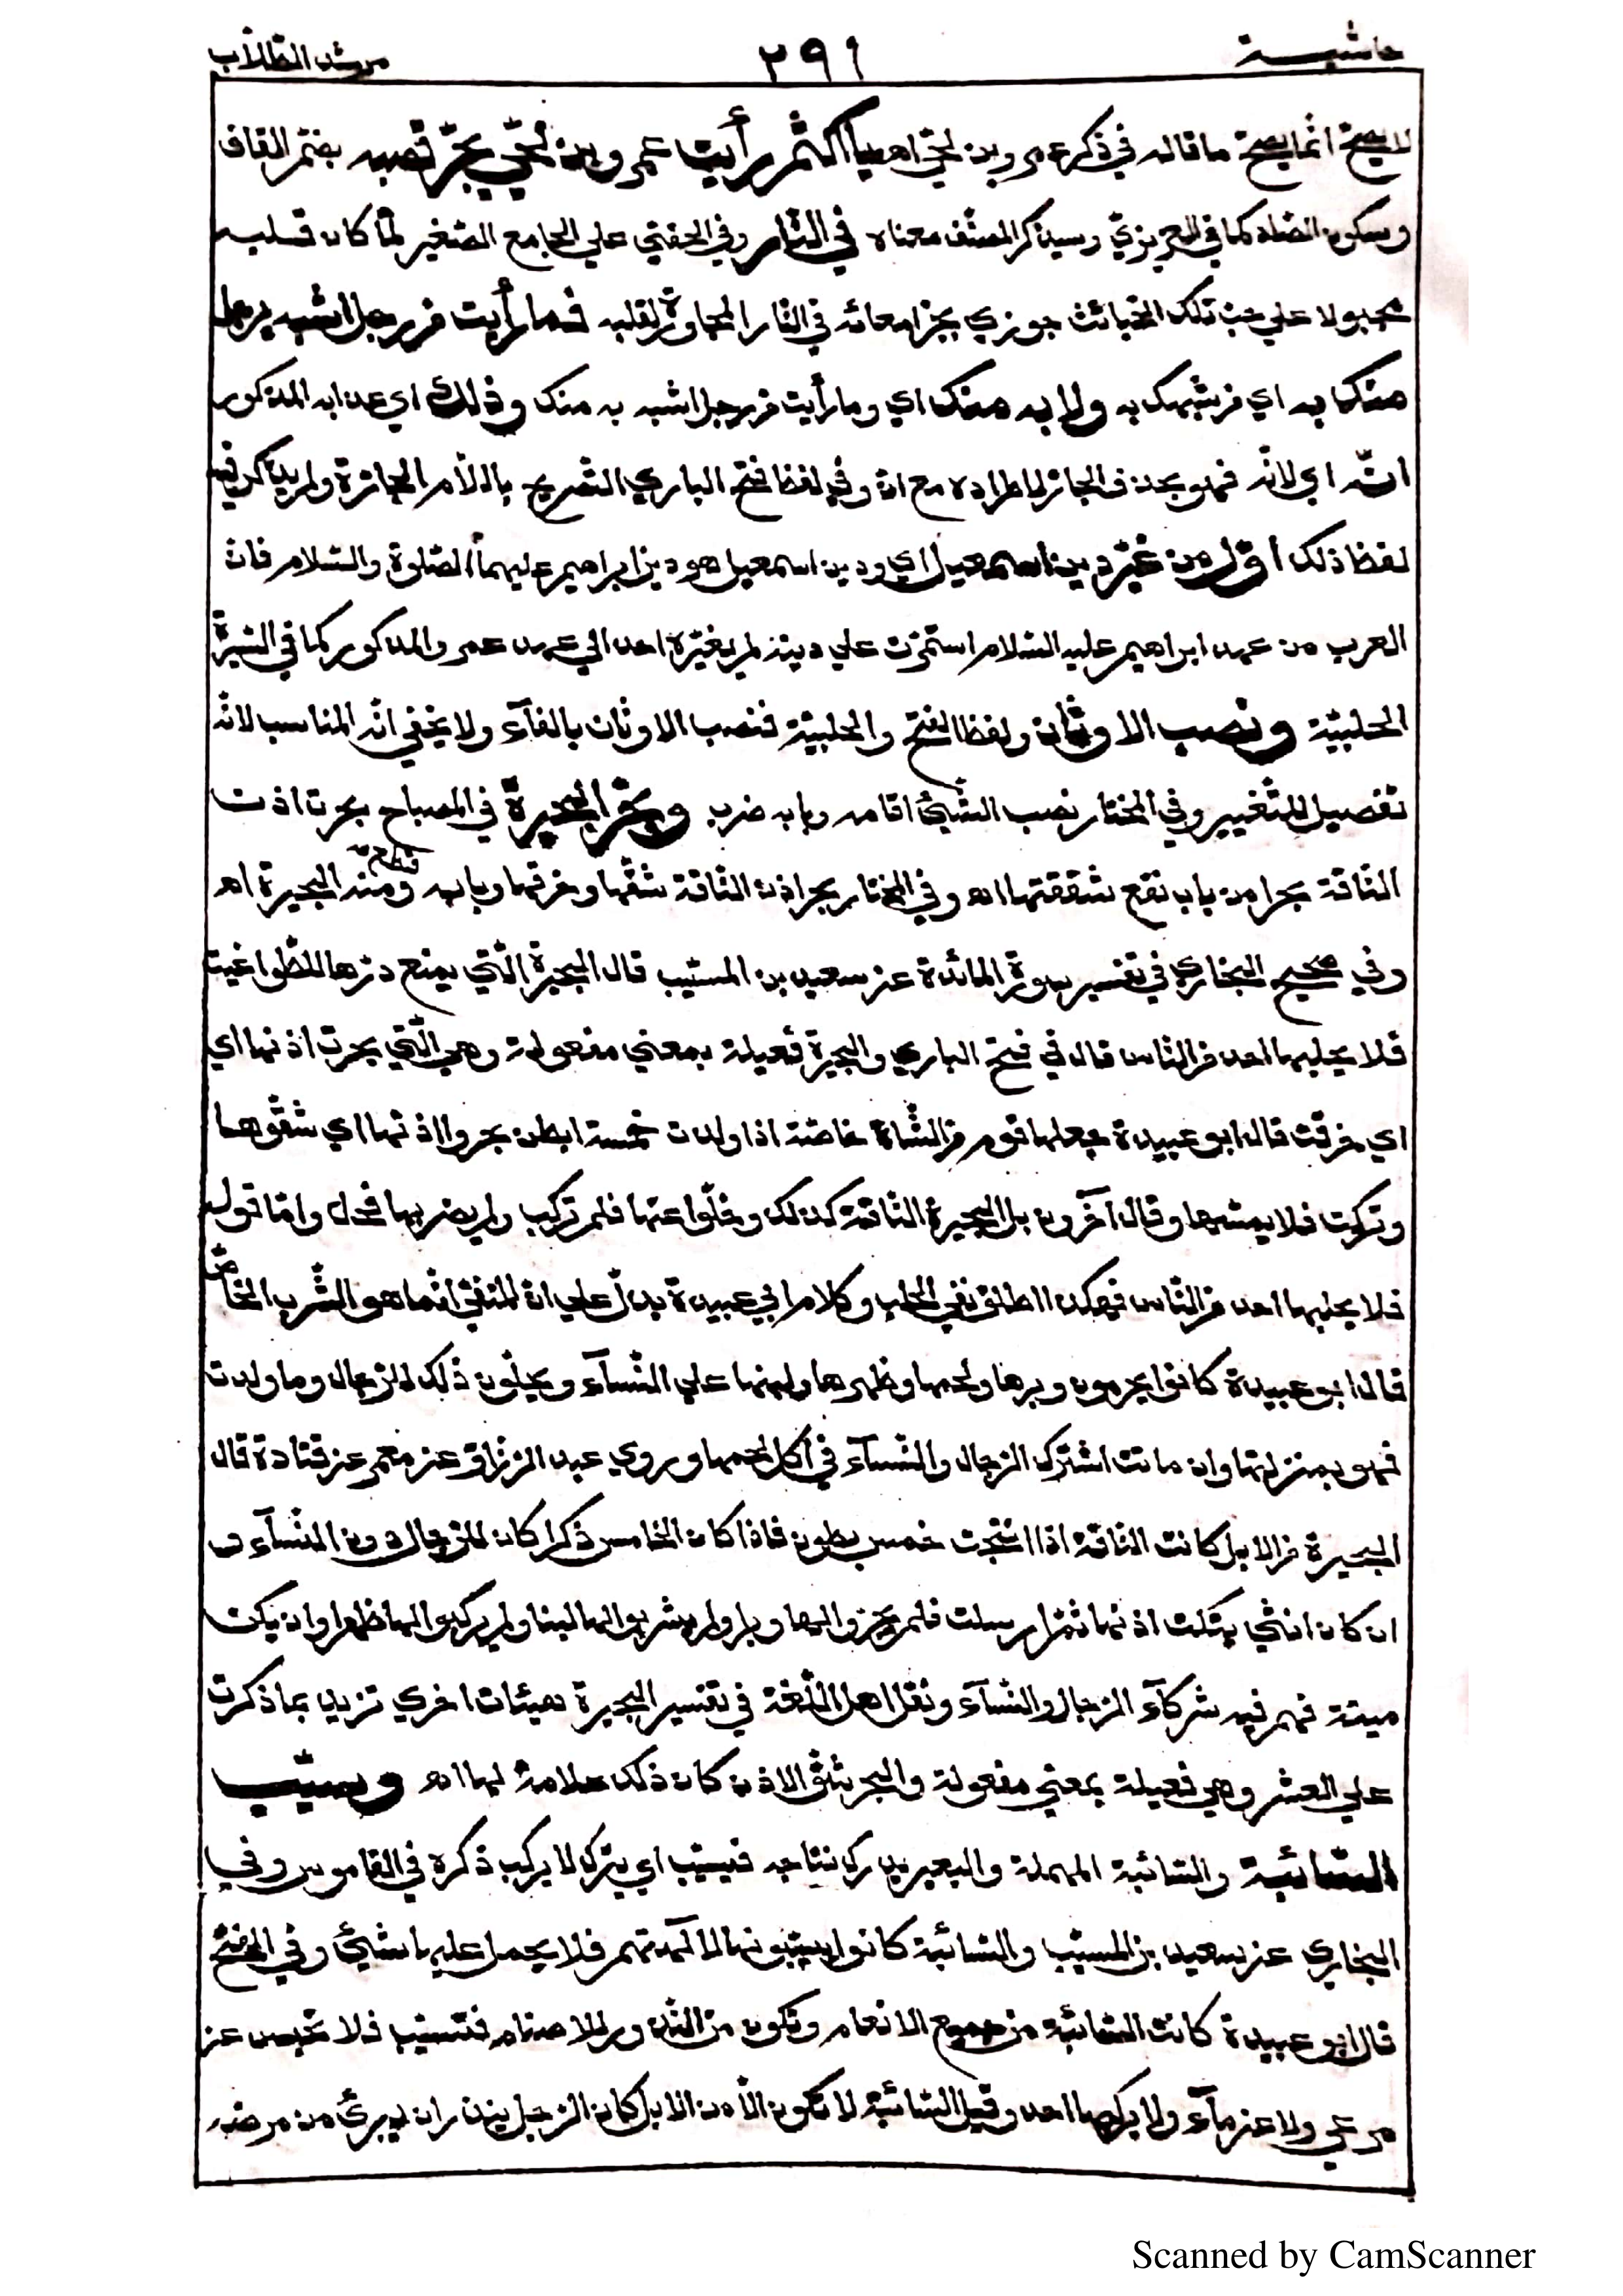 حاشية ٢٩١ مرشد الطلاب
لا يصح انما يصح ما قاله في ذكر عمرو بن لحي اهـ يا اكثم رأيت عمرو بن لحي يجر قصبه بضم القاف
وسكون الصاد كما في العزيزي وسيذكر المصنف معناه في النار وفي الحفني علي الجامع الصغير لما كان قلبه
مجبولا علي حب تلك الخبائث جوزي بجر امعائه في النار المجاورة لقلبه فما رأيت من رجل اشبه برجل
منك به اي من شبهك به ولا به منك اي وما رأيت من رجل اشبه به منك وذلك اي عذابه المذكور
انه اي لانه فهو بحذف الجار لاطراده مع ان وفي لفظ فتح الباري التصريح باللام الجارة ولم يذكر فيه
لفظ ذلك اول من غير دين اسمعيل اي ودين اسمعيل هو دين ابراهيم عليهما الصلوة والسلام فان
العرب من عهد ابراهيم عليه السلام استمرت علي دينه لم يغيره احد الي عهد عمرو المذكور كما في السيرة
الحلبية ونصب الاوثان ولفظ الفتح والحلبية فنصب الاوثان بالفآء ولا يخفي انه المناسب لانه
تفصيل للتغيير وفي المختار نصب الشيئ اقامه وبابه ضرب وبحر البحيرة في المصباح بحرت اذن
الناقة بحرا من باب نفع شققتها اهـ وفي المختار بحر اذن الناقة شقها وخرقها وبابه قطع ومنه البحيرة اهـ
وفي صحيح البخاري في تفسير سورة المائدة عن سعيد بن المسيب قال البحيرة التي يمنع درها للطواغيت
فلا يحلبها احد من الناس قال في فتح الباري والبحيرة فعيلة بمعني مفعولة وهي التي بحرت اذنها اي
اي خرقت قال ابو عبيدة جعلها قوم من الشاة خاصة اذا ولدت خمسة ابطن بحروا اذنها اي شقوها
وتركت فلا يمسها وقال آخرون بل البحيرة الناقة كذلك وخلوا عنها فلم تركب ولم يضربها فحل واما قوله
فلا يحلبها احد من الناس فهكذا اطلق نفي الحلب وكلام ابي عبيدة يدل علي ان المنفي انما هو الشرب الخاص
قال ابو عبيدة كانوا يحرمون وبرها ولحمها وظهرها ولبنها علي النسآء ويحلون ذلك للرجال وما ولدت
فهو بمنزلتها وان ماتت اشترك الرجال والنسآء في اكل لحمها وروي عبد الرزاق عن معمر عن قتادة قال
البحيرة من الابل كانت الناقة اذا انتجت خمس بطون فاذا كان الخامس ذكرا كان للرجال دون النسآء و
ان كان انثي بتكت اذنها ثم ارسلت فلم يجزوا لها وبرا ولم يشربوا لها لبنا ولم يركبوا لها ظهرا وان يكن
ميتة فهم فيه شركآء الرجال والنسآء ونقل اهل اللغة في تفسير البحيرة هيئات اخري تزيد بما ذكرت
علي العشر وهي فعيلة بمعني مفعولة والبحر شق الاذن كان ذلك علامة لها اهـ وسيب
السائبة والسائبة المهملة والبعير يدرك نتاجه فيسيب اي يترك لا يركب ذكره في القاموس وفي
البخاري عن سعيد بن المسيب والسائبة كانوا يسيبونها لآلهتهم فلا يحمل عليها شيئ وفي الفتح
قال ابو عبيدة كانت السائبة من جميع الانعام وتكون من النذور للاصنام فتسيب فلا تحبس عن
مرعي ولا عن مآء ولا يركبها احد وقيل السائبة لا تكون الا من الابل كان الرجل ينذر ان يبرئ من مرضه
Scanned by CamScanner